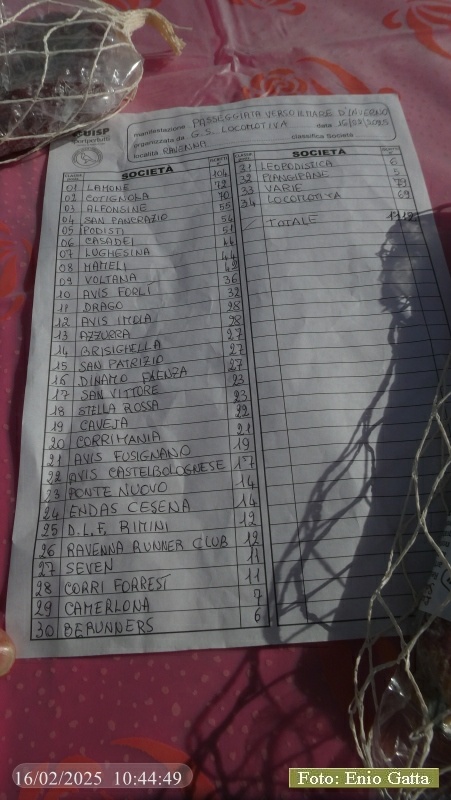 UISP
sportpertutti
manifestazione PASSEGGIATA VERSO IL MARE D'INVERNO
organizzata da G.S. LOCOMOTIVA data 16/02/2025
località RAVENNA classifica Società
SOCIETÀ
01 LAMONE 104
02 COTIGNOLA 72
03 ALFONSINE 70
04 SAN PANCRAZIO 55
05 PODISTI 54
06 CASADEI 51
07 LUGHESINA 44
08 MAMELI 44
09 VOLTANA 42
10 AVIS FORLÌ 36
11 DRAGO 32
12 AVIS IMOLA 28
13 AZZURRA 28
14 BRISIGHELLA 27
15 SAN PATRIZIO 27
16 DINAMO FAENZA 27
17 SAN VITTORE 23
18 STELLA ROSSA 23
19 CAVEJA 22
20 CORRIMANIA 21
21 AVIS FUSIGNANO 19
22 AVIS CASTELBOLOGNESE 17
23 PONTE NUOVO 14
24 ENDAS CESENA 14
25 D.L.F. RIMINI 12
26 RAVENNA RUNNER CLUB 12
27 SEVEN 11
28 CORRI FORREST 11
29 CAMERLONA 7
30 DERUNNERS 6
SOCIETÀ
31 LEOPODISTICA 6
32 PIANGIPANE 5
33 VARIE
34 LOCOMOTIVA 69
TOTALE
16/02/2025 10:44:49
Foto: Enio Gatta